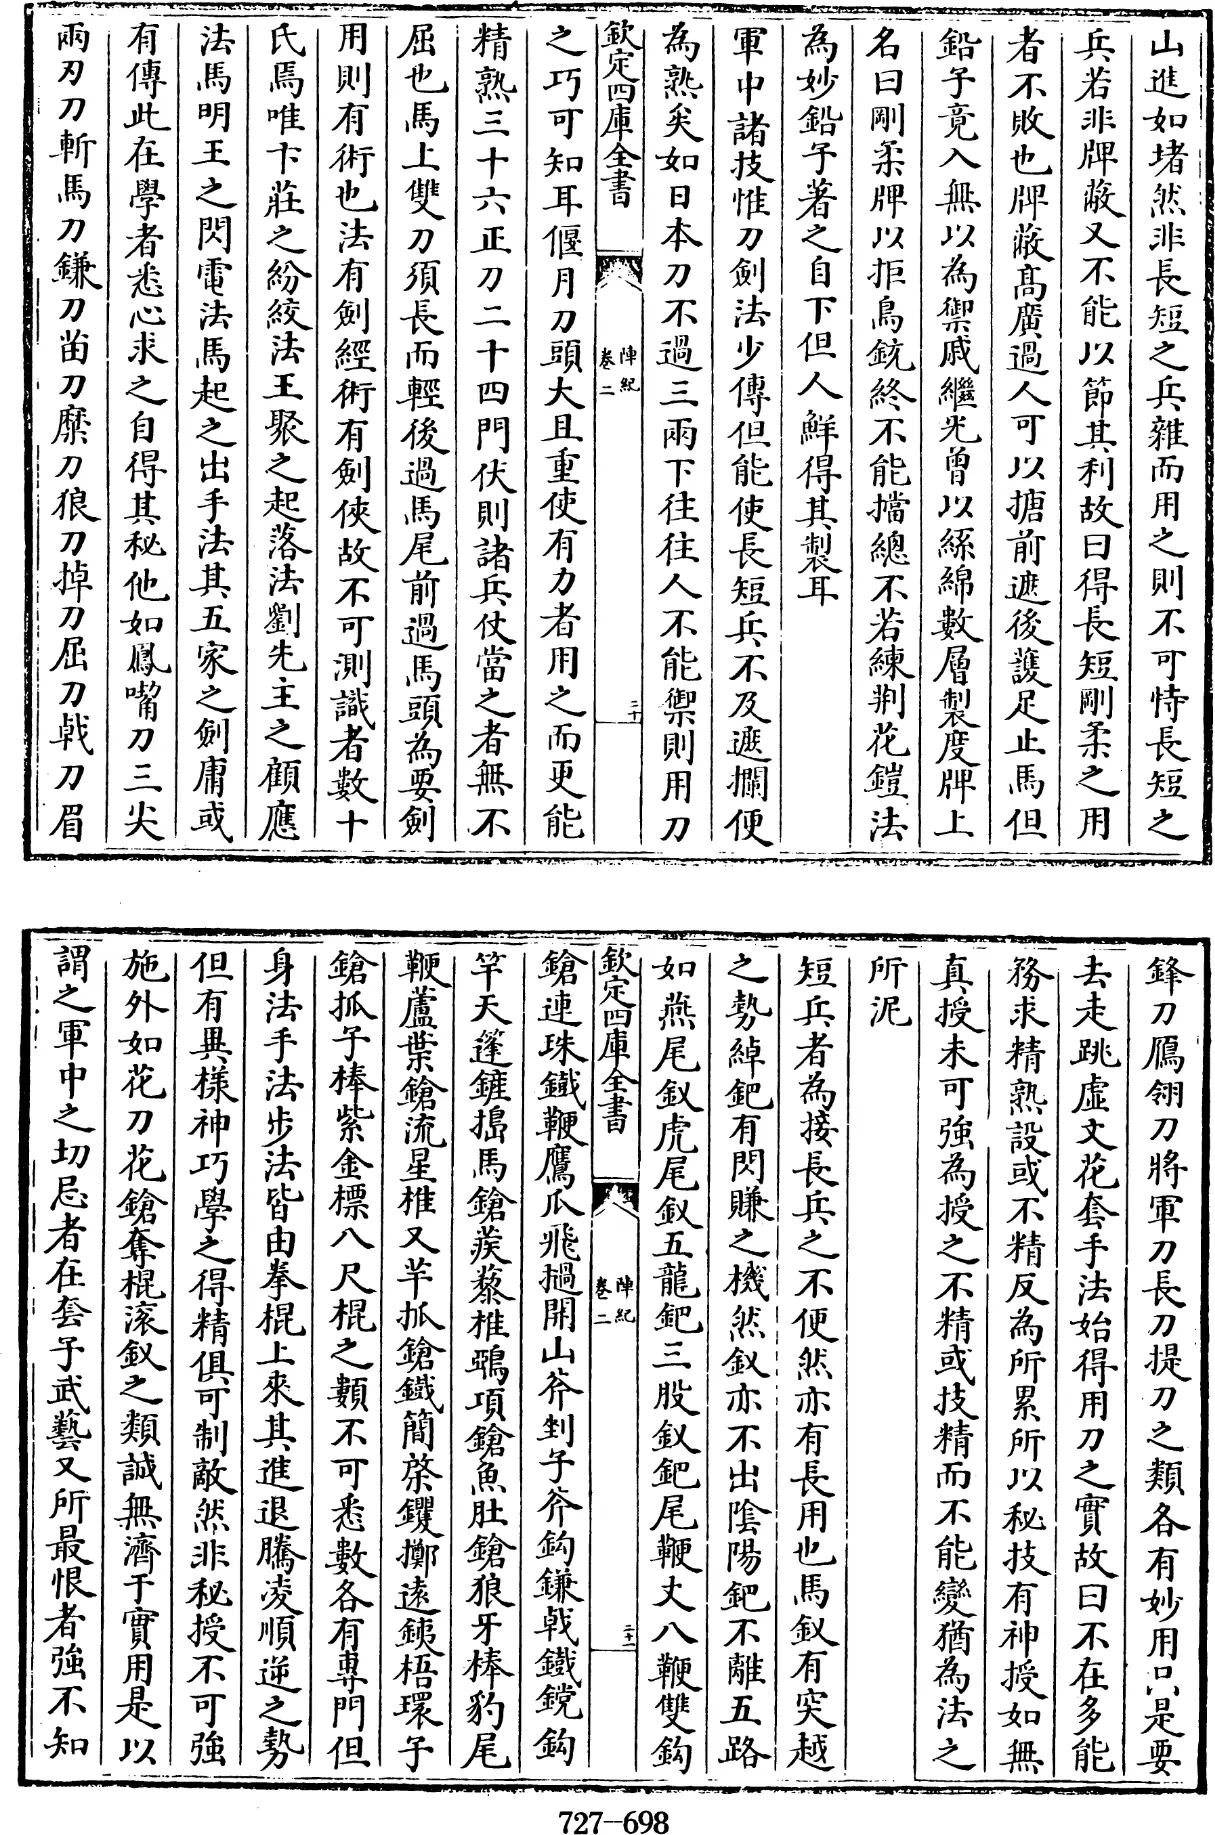 山進如堵然非長短之兵雜而用之則不可恃長短之
兵若非牌蔽又不能以節其利故曰得長短剛柔之用
者不敗也牌蔽高廣過人可以搪前遮後護足止馬但
鉛子竟入無以為禦戚繼光曾以綿綿數層製度牌上
名曰剛柔牌以拒鳥銃終不能擋總不若練荆花鎧法
為妙鉛子著之自下但人鮮得其製耳
軍中諸技惟刀劍法少傳但能使長短兵不及遮攔便
為熟矣如日本刀不過三兩下往往人不能禦則用刀
欽定四庫全書
陣紀
卷二
三十
之巧可知耳偃月刀頭大且重使有力者用之而更能
精熟三十六正刀二十四門伏則諸兵仗當之者無不
屈也馬上雙刀須長而輕後過馬尾前過馬頭為要劍
用則有術也法有劍經術有劍俠故不可測識者數十
氏焉唯卞莊之紛絞法王聚之起落法劉先主之顧應
法馬明王之閃電法馬起之出手法其五家之劍庸或
有傳此在學者悉心求之自得其秘他如鳳嘴刀三尖
兩刃刀斬馬刀鎌刀苗刀糜刀狼刀掉刀屈刀戟刀眉
鋒刀鴈翎刀將軍刀長刀提刀之類各有妙用只是要
去走跳虛文花套手法始得用刀之實故曰不在多能
務求精熟設或不精反為所累所以秘技有神授如無
真授未可強為授之不精或技精而不能變猶為法之
所泥
短兵者為接長兵之不便然亦有長用也馬釵有突越
之勢綽鈀有閃賺之機然釵亦不出陰陽鈀不離五路
如燕尾釵虎尾釵五龍鈀三股釵鈀尾鞭丈八鞭雙鈎
欽定四庫全書
陣紀
卷二
三十一
鎗連珠鐵鞭鷹爪飛撾開山斧剉子斧鈎鎌戟鐵鎲鈎
竿天蓬鏟搗馬鎗蒺藜椎鵶項鎗魚肚鎗狼牙棒豹尾
鞭蘆葉鎗流星椎又羊抓鎗鐵簡棨钁擲遠鋏梧環子
鎗抓子棒紫金標八尺棍之類不可悉數各有專門但
身法手法步法皆由拳棍上來其進退騰凌順逆之勢
但有異樣神巧學之得精俱可制敵然非秘授不可強
施外如花刀花鎗奪棍滚釵之類誠無濟于實用是以
謂之軍中之切忌者在套子武藝又所最恨者強不知
727—698